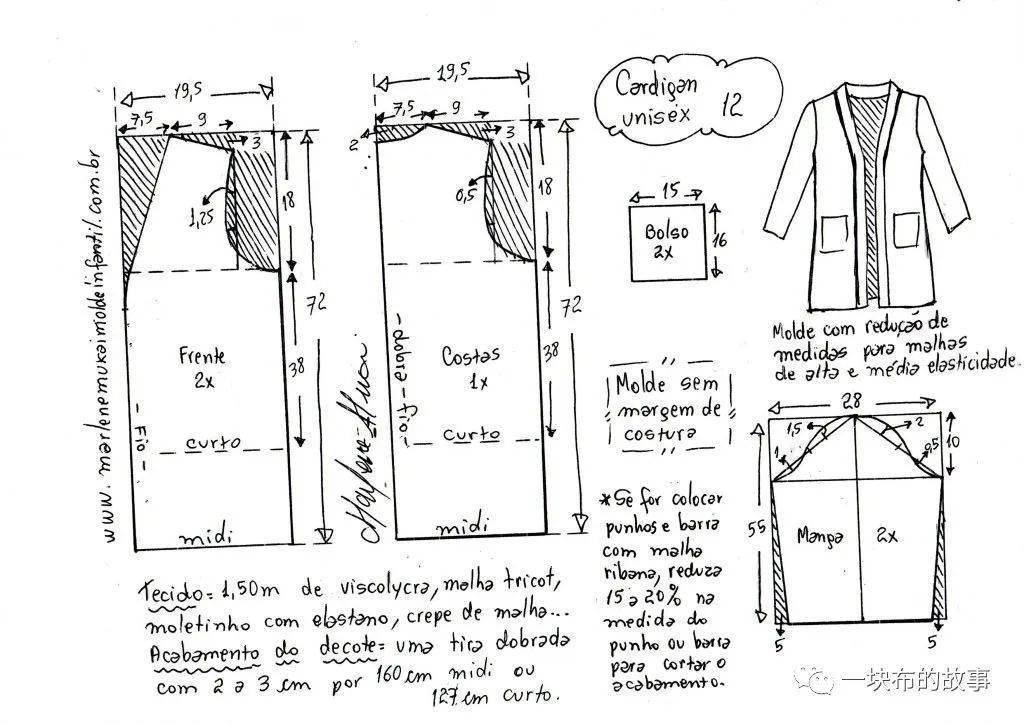 www.marlenemukaimoldeinfantil.com.br
19,5
7,5
9
3
1,25
18
72
38
Frente
2x
- Fio -
curto
midi
19,5
7,5
9
2
3
0,5
18
72
38
Costas
1x
- dobra - fio -
curto
midi
Cardigan
unisex 12
15
Bolso
2x
16
Molde sem
margem de
costura
Molde com redução de
medidas para malhas
de alta e média elasticidade.
28
1,5
2
1
0,5
10
55
Manga 2x
5
5
*Se for colocar
punhos e barra
com malha
ribana, reduza
15 a 20% na
medida do
punho ou barra
para cortar o
acabamento.
Tecido = 1,50m de viscolycra, malha tricot,
moletinho com elastano, crepe de malha...
Acabamento do decote = uma tira dobrada
com 2 a 3 cm por 160 cm midi ou
127 cm curto.
一块布的故事